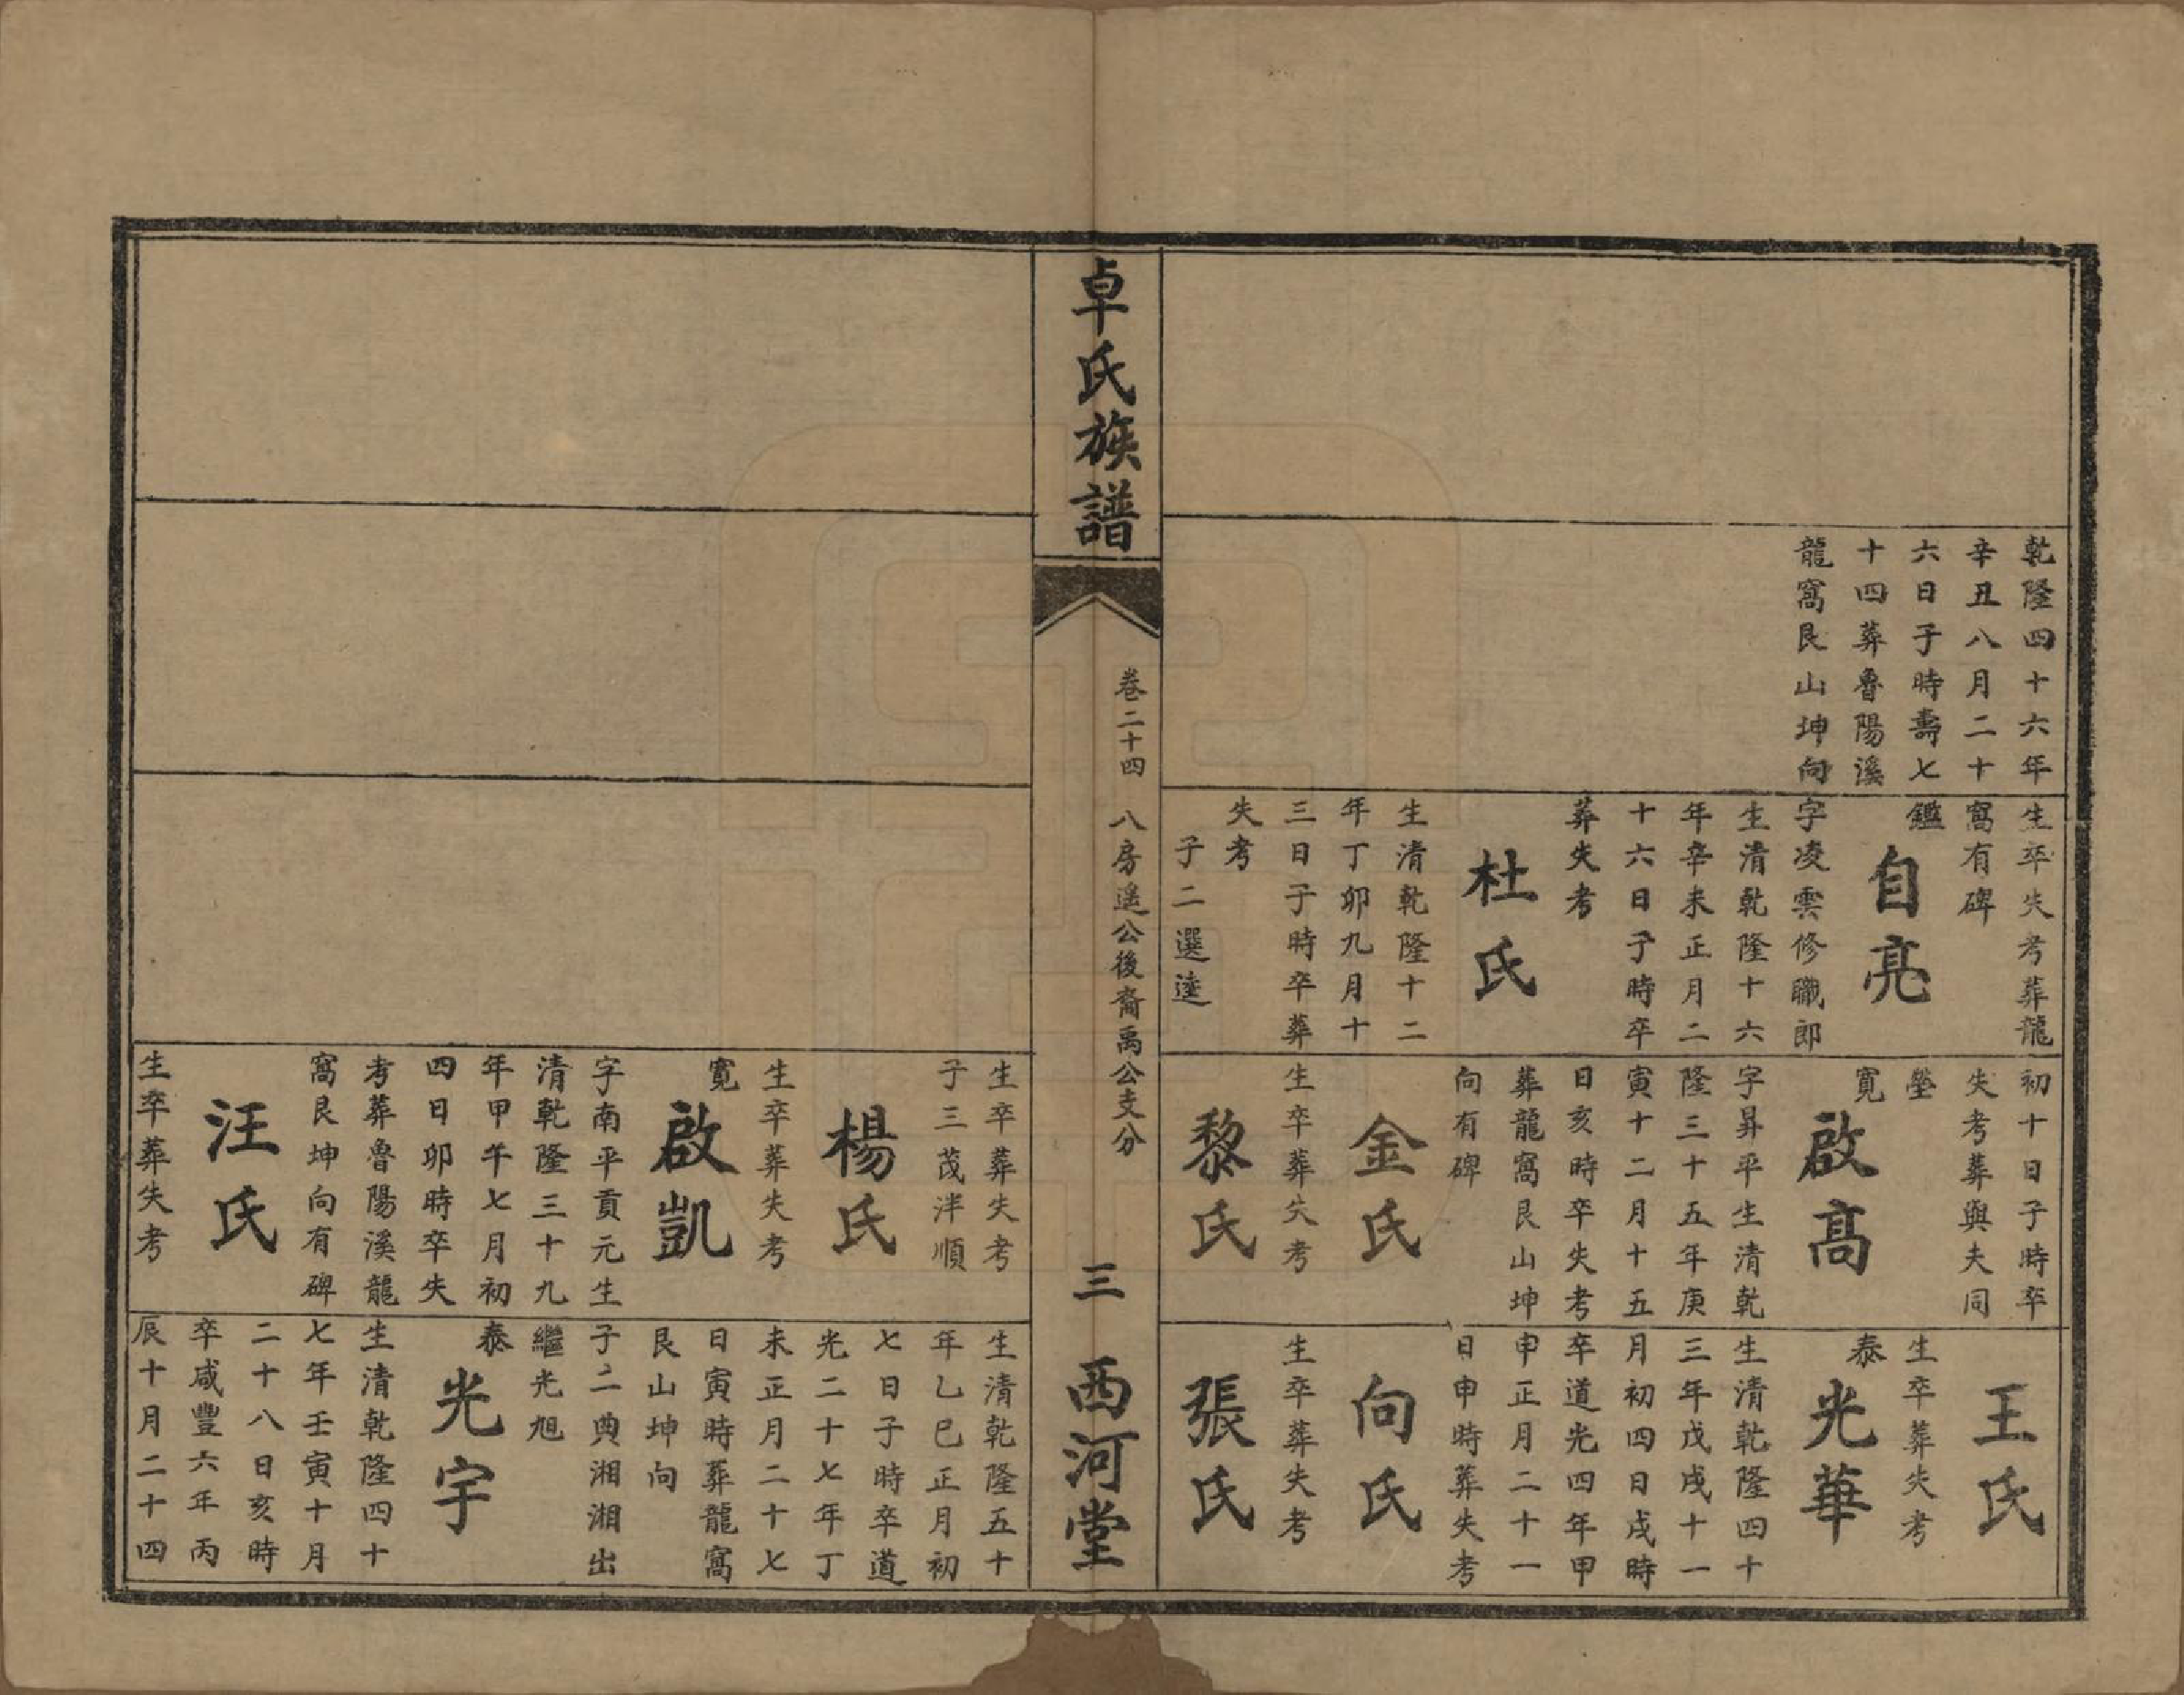 乾隆四十六年
辛丑八月二十
六日子時壽七
十四葬魯陽溪
龍窩艮山坤向
生卒失考葬龍
窩有碑
鑑
自亮
字凌雲修職郎
生清乾隆十六
年辛未正月二
十六日子時卒
葬失考
杜氏
生清乾隆十二
年丁卯九月十
三日子時卒葬
失考
子二選達
初十日子時卒
失考葬與夫同
塋
寬
啟高
字昇平生清乾
隆三十五年庚
寅十二月十五
日亥時卒失考
葬龍窩艮山坤
向有碑
金氏
生卒葬失考
黎氏
王氏
生卒葬失考
泰
光華
生清乾隆四十
三年戊戌十一
月初四日戌時
卒道光四年甲
申正月二十一
日申時葬失考
向氏
生卒葬失考
張氏
卓氏族譜
卷二十四
八房遥公後裔禹公支分
三
西河堂
生卒葬失考
子三茂泮順
楊氏
生卒葬失考
寬
啟凱
字南平貢元生
清乾隆三十九
年甲午七月初
四日卯時卒失
考葬魯陽溪龍
窩艮坤向有碑
汪氏
生卒葬失考
生清乾隆五十
年乙巳正月初
七日子時卒道
光二十七年丁
未正月二十七
日寅時葬龍窩
艮山坤向
子二典湘湘出
繼光旭
泰
光宇
生清乾隆四十
七年壬寅十月
二十八日亥時
卒咸豐六年丙
辰十月二十四